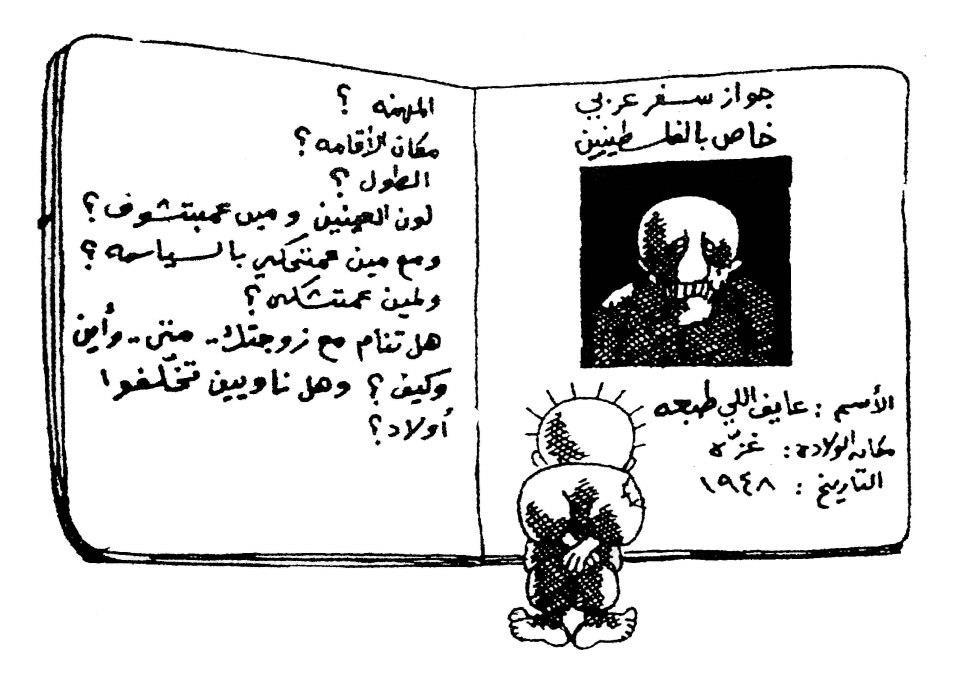 جواز سفر عربي
خاص بالفلسطينيين
الأسم : عايف اللي طبعه
مكان الولادة : غزّه
التاريخ : ١٩٤٨
المهنه ؟
مكان الأقامه ؟
الطول ؟
لون العينين ومين عمبتشوف ؟
ومع مين عمتحكي بالسياسه ؟
ولمين عمتشكي ؟
هل تنام مع زوجتك .. متى .. وأين
وكيف ؟ وهل ناويين تخلّفوا
أولاد ؟